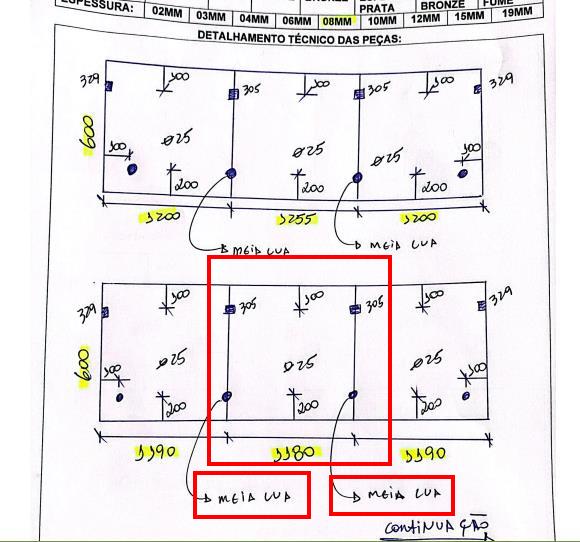 ESPESSURA:
02MM 03MM 04MM 06MM 08MM 10MM 12MM 15MM 19MM
PRATA BRONZE FUMÊ
DETALHAMENTO TÉCNICO DAS PEÇAS:
329 100 305 100 305 100 329
600
100 ø25 ø25 ø25 100
200 200 200
1200 1255 1200
MEIA LUA MEIA LUA
329 100 305 100 305 100 329
600
100 ø25 ø25 ø25 100
200 200 200
1190 1180 1190
MEIA LUA MEIA LUA
CONTINUAÇÃO